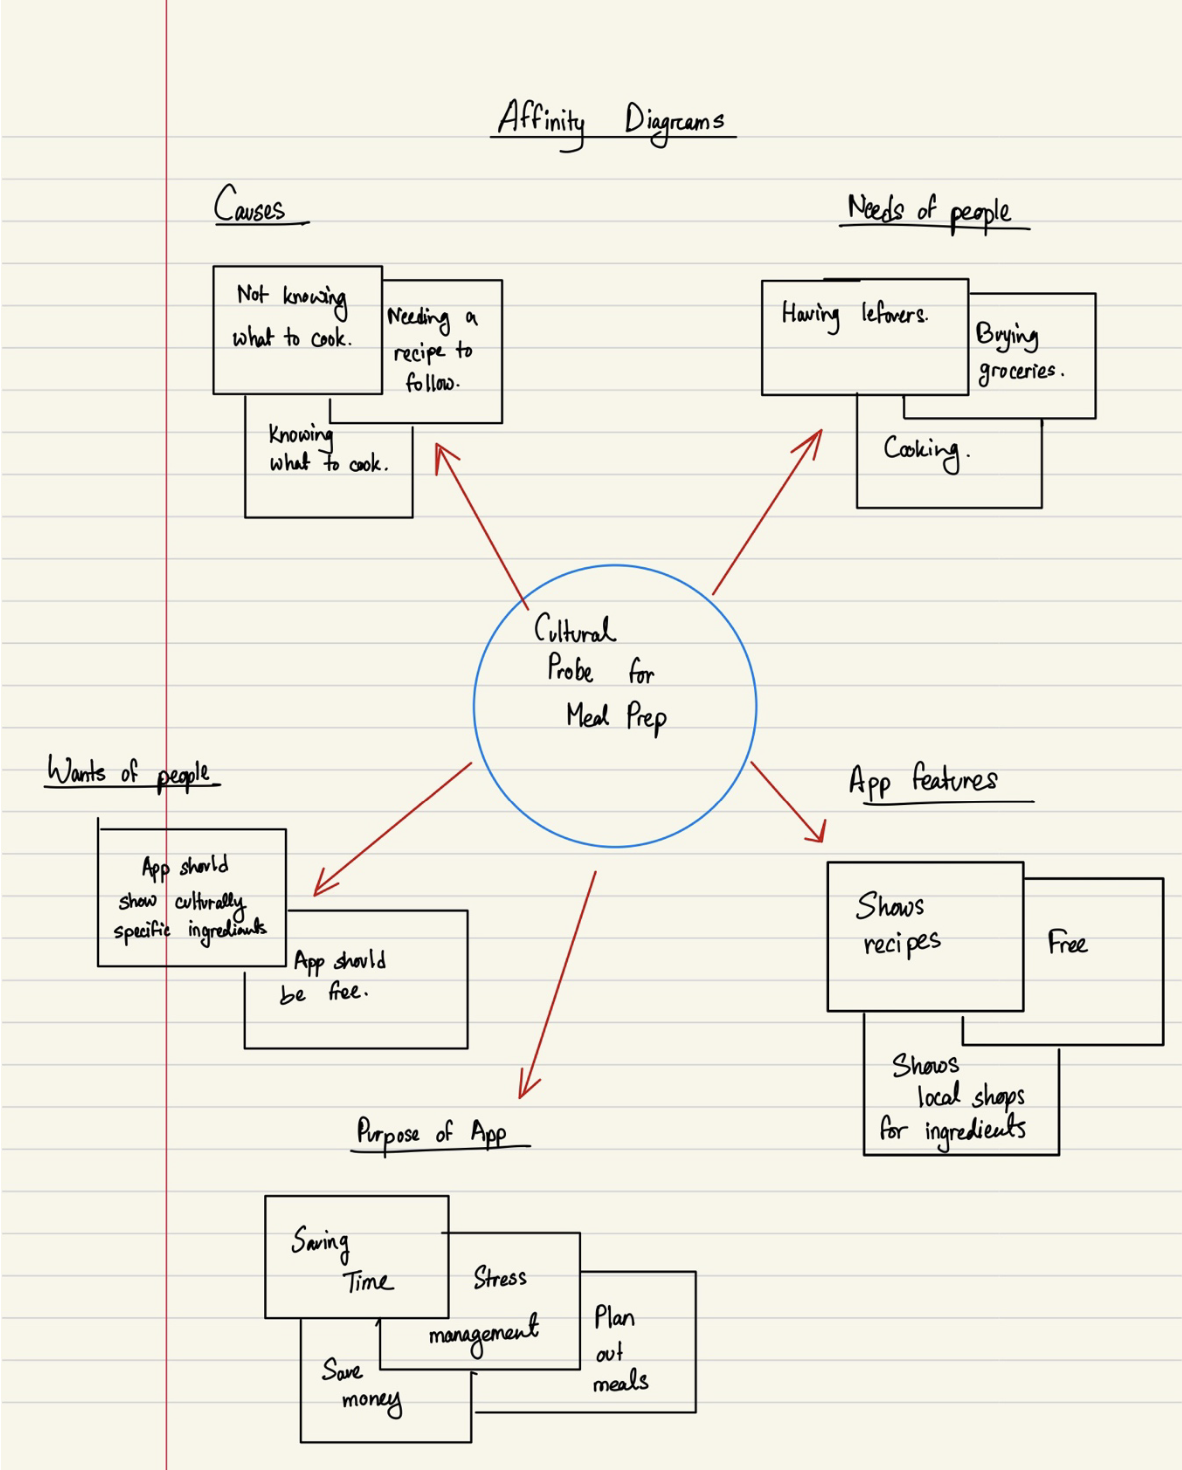 Affinity Diagrams
Causes
Not knowing
what to cook.
Needing a
recipe to
follow.
Knowing
what to cook.
Needs of people
Having lefovers.
Buying
groceries.
Cooking.
Cultural
Probe for
Meal Prep
Wants of people
App should
show culturally
specific ingredients
App should
be free.
App features
Shows
recipes
Free
Shows
local shops
for ingredients
Purpose of App
Saving
Time
Stress
management
Plan
out
meals
Save
money